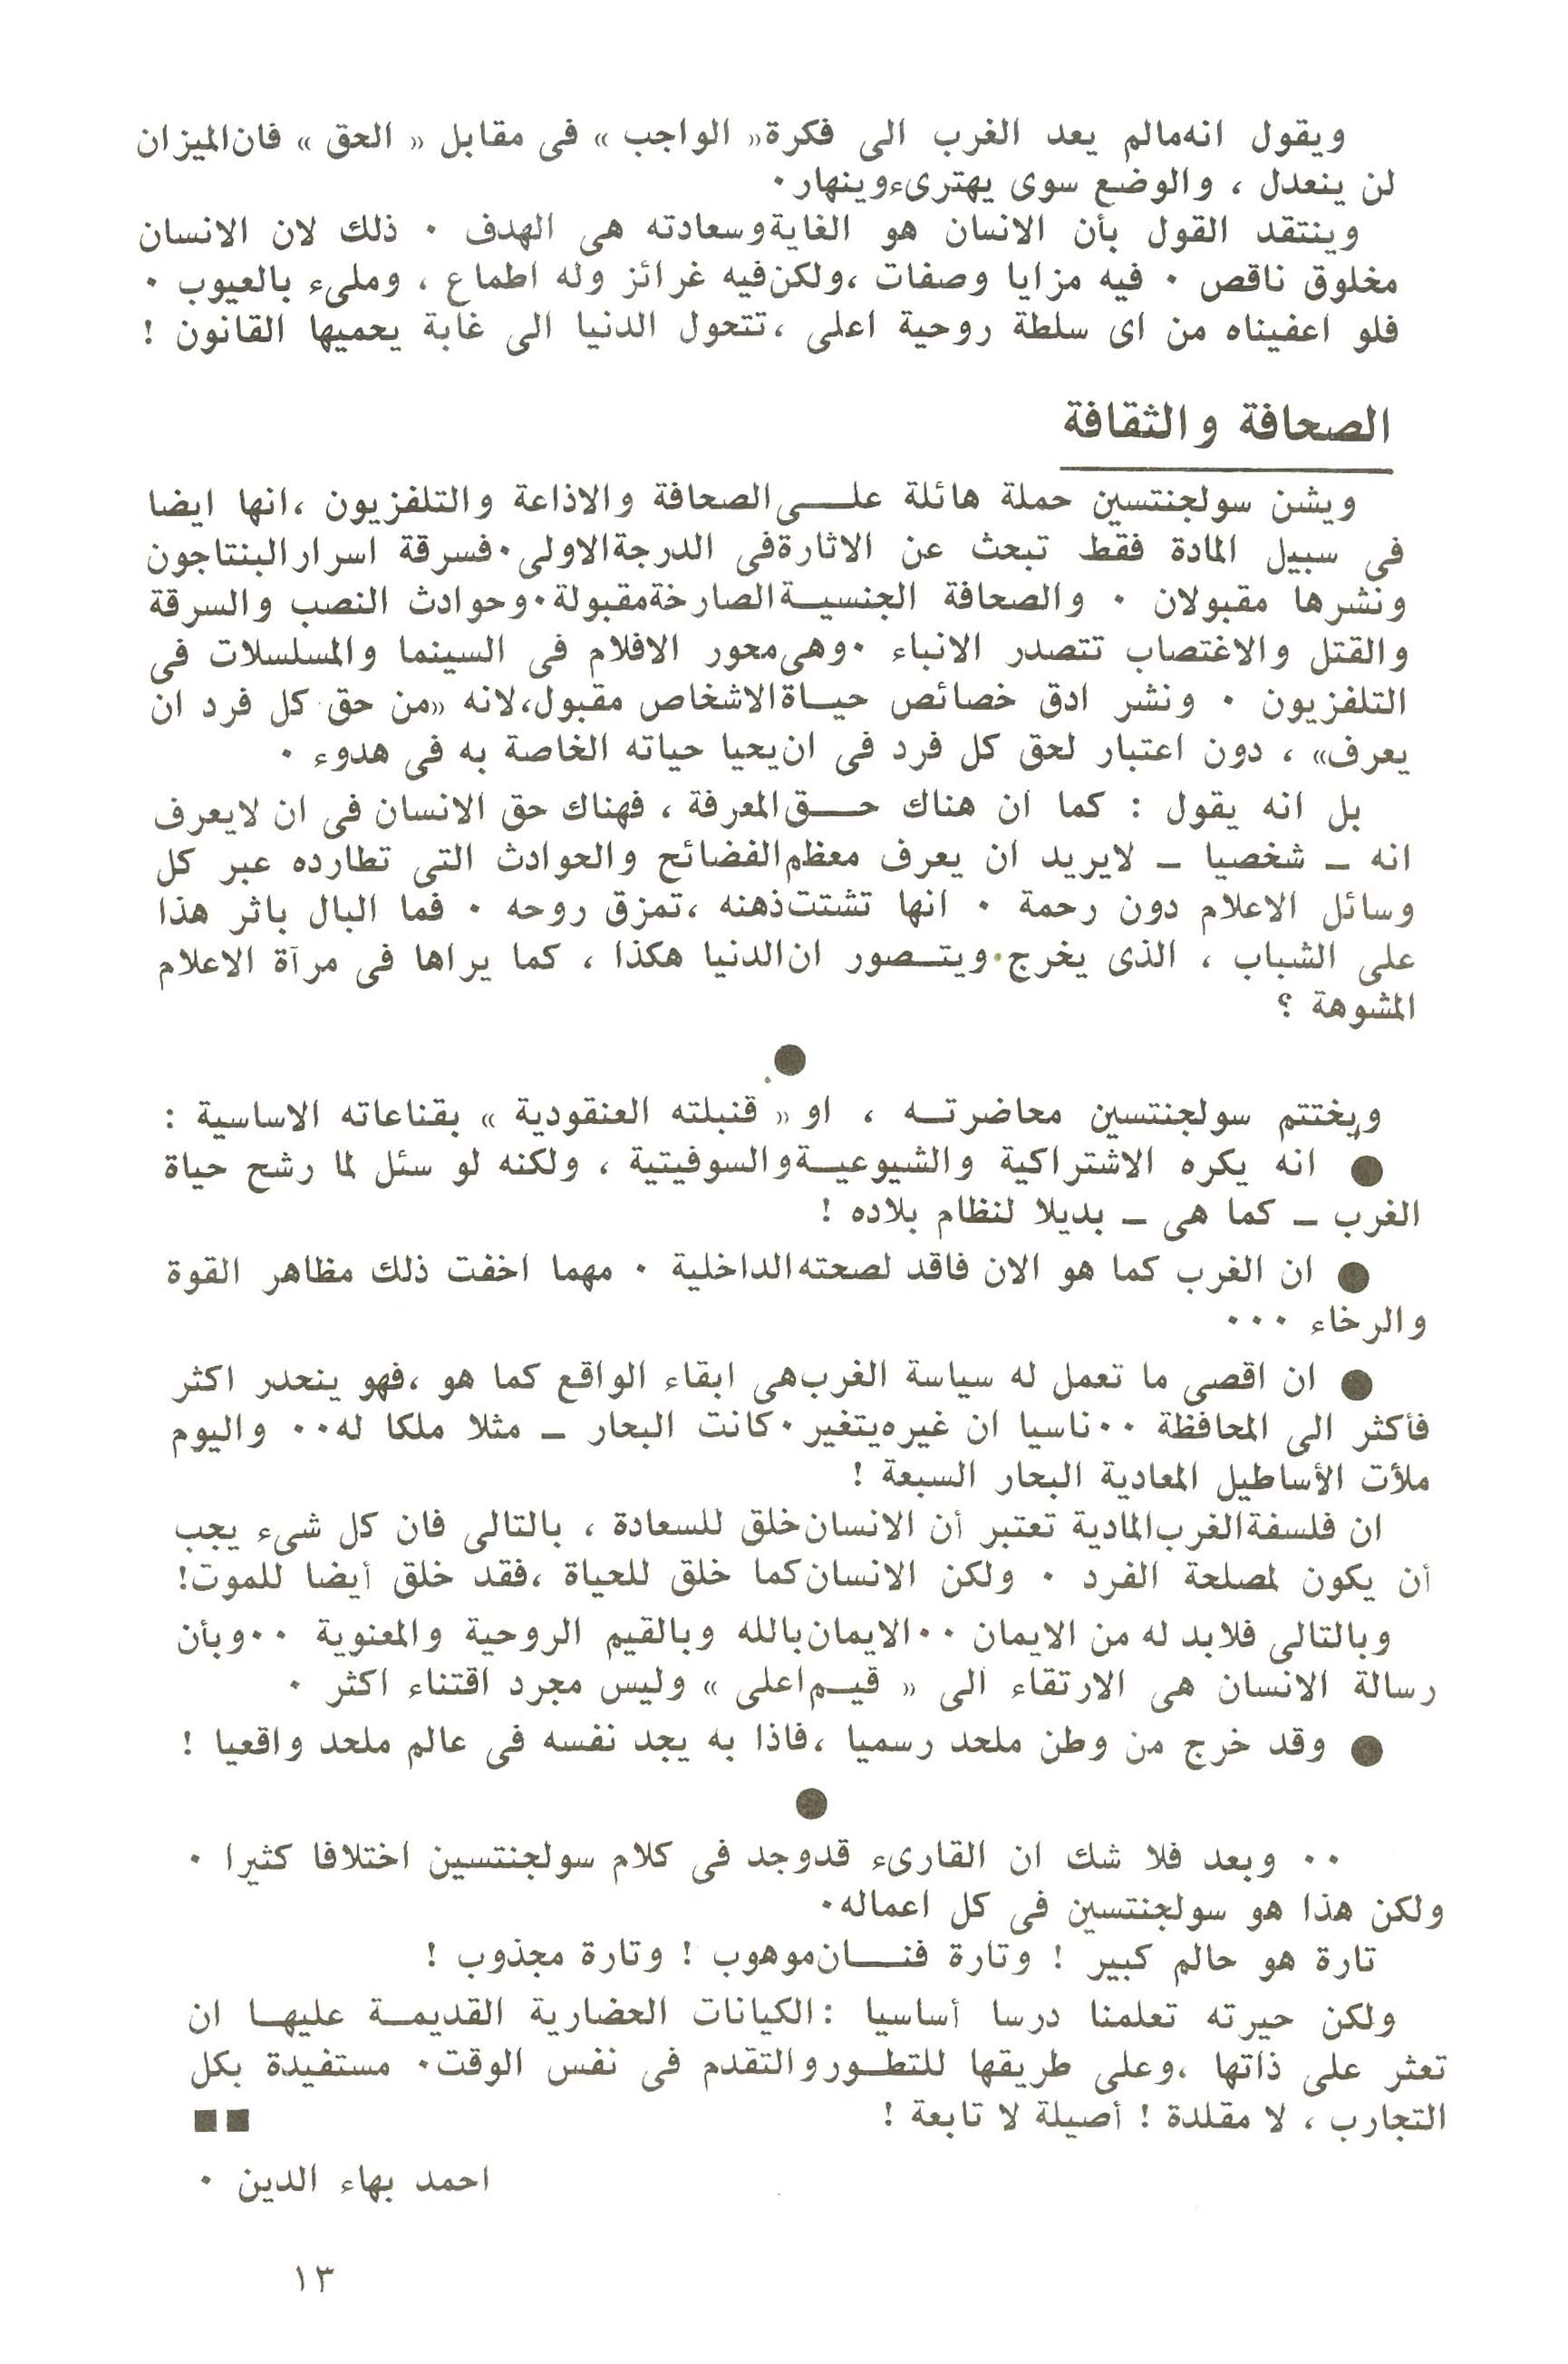 ويقول انه مالم يعد الغرب الى فكرة « الواجب » فى مقابل « الحق » فان الميزان
لن ينعدل ، والوضع سوى يهترىء وينهار ٠
وينتقد القول بأن الانسان هو الغاية وسعادته هى الهدف ٠ ذلك لان الانسان
مخلوق ناقص ٠ فيه مزايا وصفات ، ولكن فيه غرائز وله اطماع ، ومليء بالعيوب ٠
فلو اعفيناه من اى سلطة روحية اعلى ، تتحول الدنيا الى غابة يحميها القانون !
الصحافة والثقافة
ويشن سولجنتسين حملة هائلة على الصحافة والاذاعة والتلفزيون ، انها ايضا
فى سبيل المادة فقط تبحث عن الاثارة فى الدرجة الاولى ٠ فسرقة اسرار البنتاجون
ونشرها مقبولان ٠ والصحافة الجنسية الصارخة مقبولة ٠ وحوادث النصب والسرقة
والقتل والاغتصاب تتصدر الانباء ٠ وهى محور الافلام فى السينما والمسلسلات فى
التلفزيون ٠ ونشر ادق خصائص حياة الاشخاص مقبول ، لانه «من حق كل فرد ان
يعرف» ، دون اعتبار لحق كل فرد فى ان يحيا حياته الخاصة به فى هدوء ٠
بل انه يقول : كما ان هناك حق المعرفة ، فهناك حق الانسان فى ان لايعرف
انه ـ شخصيا ـ لايريد ان يعرف معظم الفضائح والحوادث التى تطارده عبر كل
وسائل الاعلام دون رحمة ٠ انها تشتت ذهنه ، تمزق روحه ٠ فما البال باثر هذا
على الشباب ، الذى يخرج ويتصور ان الدنيا هكذا ، كما يراها فى مرآة الاعلام
المشوهة ؟
●
ويختتم سولجنتسين محاضرته ، او « قنبلته العنقودية » بقناعاته الاساسية :
● انه يكره الاشتراكية والشيوعية والسوفيتية ، ولكنه لو سئل لما رشح حياة
الغرب ـ كما هى ـ بديلا لنظام بلاده !
● ان الغرب كما هو الان فاقد لصحته الداخلية ٠ مهما اخفت ذلك مظاهر القوة
والرخاء ٠٠٠
● ان اقصى ما تعمل له سياسة الغرب هى ابقاء الواقع كما هو ، فهو ينحدر اكثر
فأكثر الى المحافظة ٠٠ ناسيا ان غيره يتغير ٠ كانت البحار ـ مثلا ملكا له ٠٠ واليوم
ملأت الأساطيل المعادية البحار السبعة !
ان فلسفة الغرب المادية تعتبر أن الانسان خلق للسعادة ، بالتالى فان كل شىء يجب
أن يكون لمصلحة الفرد ٠ ولكن الانسان كما خلق للحياة ، فقد خلق أيضا للموت!
وبالتالى فلابد له من الايمان ٠٠ الايمان بالله وبالقيم الروحية والمعنوية ٠٠ وبأن
رسالة الانسان هى الارتقاء الى « قيم اعلى » وليس مجرد اقتناء اكثر ٠
● وقد خرج من وطن ملحد رسميا ، فاذا به يجد نفسه فى عالم ملحد واقعيا !
●
٠٠ وبعد فلا شك ان القارىء قد وجد فى كلام سولجنتسين اختلافا كثيرا ٠
ولكن هذا هو سولجنتسين فى كل اعماله ٠
تارة هو حالم كبير ! وتارة فنان موهوب ! وتارة مجذوب !
ولكن حيرته تعلمنا درسا أساسيا : الكيانات الحضارية القديمة عليها ان
تعثر على ذاتها ، وعلى طريقها للتطور والتقدم فى نفس الوقت ٠ مستفيدة بكل
التجارب ، لا مقلدة ! أصيلة لا تابعة ! ■■
احمد بهاء الدين ٠
١٣